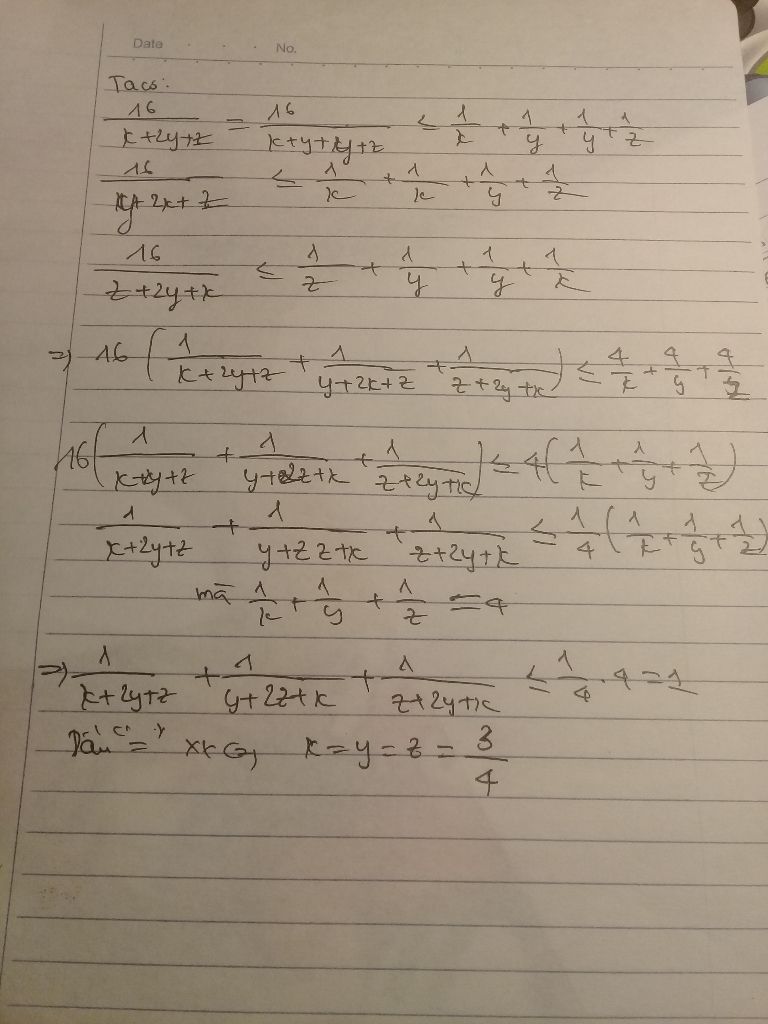 Date . . . No.
Ta có:
16/(x+2y+z) = 16/(x+y+y+z) ≤ 1/x + 1/y + 1/y + 1/z
16/(y+2x+z) ≤ 1/x + 1/x + 1/y + 1/z
16/(z+2y+x) ≤ 1/z + 1/y + 1/y + 1/x
=> 16(1/(x+2y+z) + 1/(y+2x+z) + 1/(z+2y+x)) ≤ 4/x + 4/y + 4/z
16(1/(x+y+z) + 1/(y+2z+x) + 1/(z+2y+x)) ≤ 4(1/x + 1/y + 1/z)
1/(x+2y+z) + 1/(y+zz+x) + 1/(z+2y+x) ≤ 1/4(1/x + 1/y + 1/z)
mã 1/x + 1/y + 1/z = 4
=> 1/(x+2y+z) + 1/(y+2z+x) + 1/(z+2y+x) ≤ 1/4 . 4 = 1
Dấu "=" x = y = z = 3/4